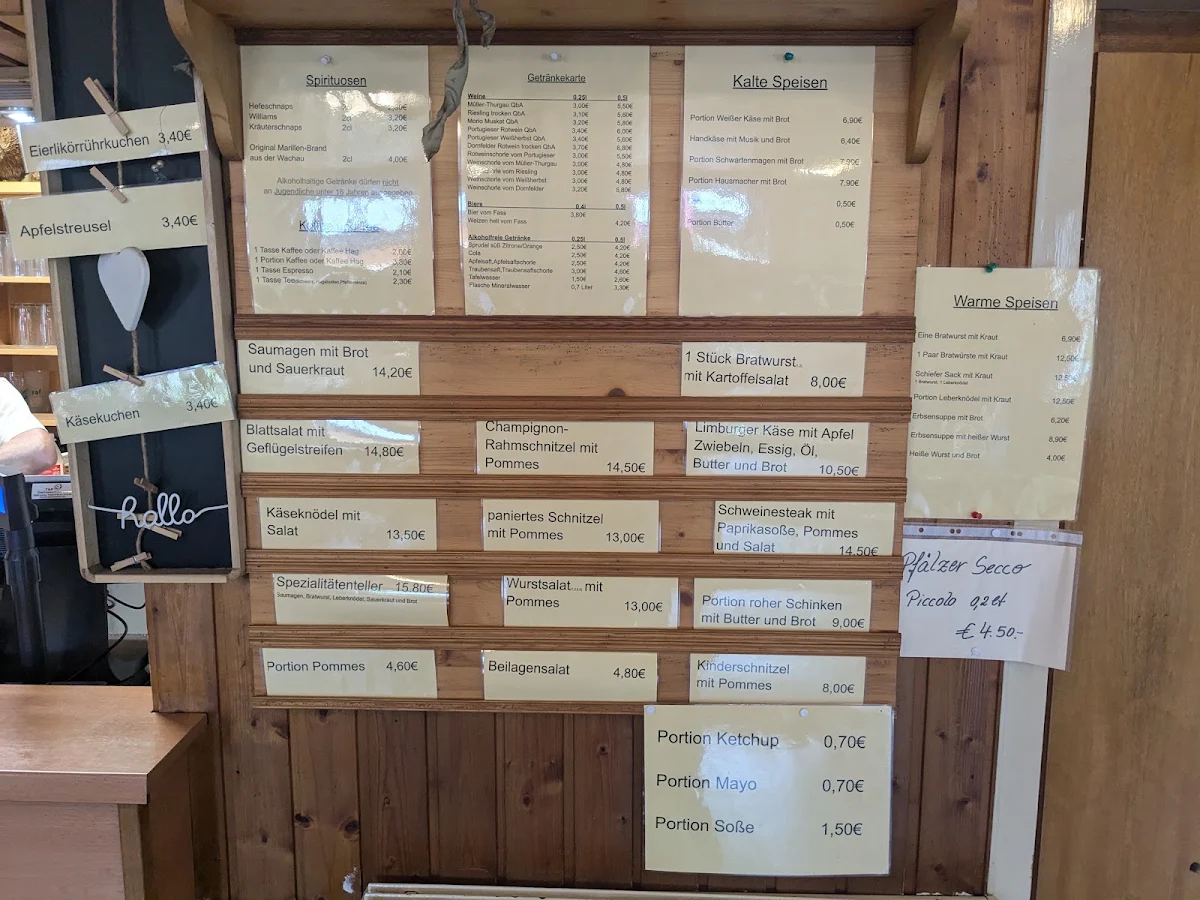 Eierlikörrührkuchen 3,40€
Apfelstreusel 3,40€
Käsekuchen 3,40€
hallo
Spirituosen
Hefeschnaps 2cl
Williams 2cl 3,20€
Kräuterschnaps 2cl 3,20€
Original Marillen-Brand
aus der Wachau 2cl 4,00€
Alkoholhaltige Getränke dürfen nicht
an Jugendliche unter 15 Jahren ausgegeben
1 Tasse Kaffee oder Kaffee Hag
1 Portion Kaffee oder Kaffee Hag
1 Tasse Espresso 2,10€
1 Tasse Tee 2,30€
Getränkekarte
Weine 0,25l 0,5l
Müller-Thurgau QbA 3,00€ 5,50€
Riesling trocken QbA 3,10€ 5,60€
Morio Muskat QbA 3,20€ 5,80€
Portugieser Rotwein QbA 3,40€ 6,00€
Portugieser Weißherbst QbA 3,40€ 5,60€
Dornfelder Rotwein trocken QbA 3,70€ 6,80€
Rotweinschorle vom Portugieser 3,00€ 5,50€
Weinschorle vom Müller-Thurgau 3,00€ 4,80€
Weinschorle vom Riesling 3,00€ 4,80€
Weinschorle vom Weißherbst 3,00€ 4,80€
Weinschorle vom Dornfelder 3,20€ 5,80€
Biere 0,4l 0,5l
Bier vom Fass 3,80€
Weizen hell vom Fass 4,20€
Alkoholfreie Getränke 0,25l 0,5l
Sprudel süß Zitrone/Orange 2,50€ 4,20€
Cola 2,50€ 4,20€
Apfelsaft,Apfelsaftschorle 2,50€ 4,20€
Traubensaft,Traubensaftschorle 3,00€ 4,60€
Tafelwasser 1,50€ 2,60€
Flasche Mineralwasser 0,7 Liter 3,30€
Kalte Speisen
Portion Weißer Käse mit Brot 6,90€
Handkäse mit Musik und Brot 6,40€
Portion Schwartenmagen mit Brot 7,90€
Portion Hausmacher mit Brot 7,90€
0,50€
Portion Butter 0,50€
Warme Speisen
Eine Bratwurst mit Kraut 6,90€
1 Paar Bratwürste mit Kraut 12,50€
Schiefer Sack mit Kraut 12,50€
1 Bratwurst, 1 Leberknödel
Portion Leberknödel mit Kraut 12,50€
Erbsensuppe mit Brot 6,20€
Erbsensuppe mit heißer Wurst 8,90€
Heiße Wurst und Brot 4,00€
Saumagen mit Brot
und Sauerkraut 14,20€
1 Stück Bratwurst
mit Kartoffelsalat 8,00€
Blattsalat mit
Geflügelstreifen 14,80€
Champignon-
Rahmschnitzel mit
Pommes 14,50€
Limburger Käse mit Apfel
Zwiebeln, Essig, Öl,
Butter und Brot 10,50€
Käseknödel mit
Salat 13,50€
paniertes Schnitzel
mit Pommes 13,00€
Schweinesteak mit
Paprikasoße, Pommes
und Salat 14,50€
Spezialitätenteller 15,80€
Saumagen, Bratwurst, Leberknödel, Sauerkraut und Brot
Wurstsalat mit
Pommes 13,00€
Portion roher Schinken
mit Butter und Brot 9,00€
Portion Pommes 4,60€
Beilagensalat 4,80€
Kinderschnitzel
mit Pommes 8,00€
Pfälzer Secco
Piccolo 0,2 lt
€ 4.50.-
Portion Ketchup 0,70€
Portion Mayo 0,70€
Portion Soße 1,50€